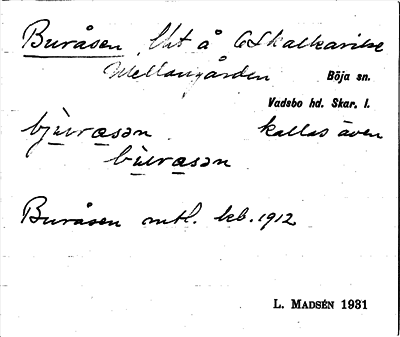 Buråsen, lht å Skalkarike
Mellangården Böja sn.
Vadsbo hd. Skar. l.
bju̱vra̱sən kallas även
bu̱vra̱sən
Buråsen mtl. kb. 1912
L. MADSÉN 1931